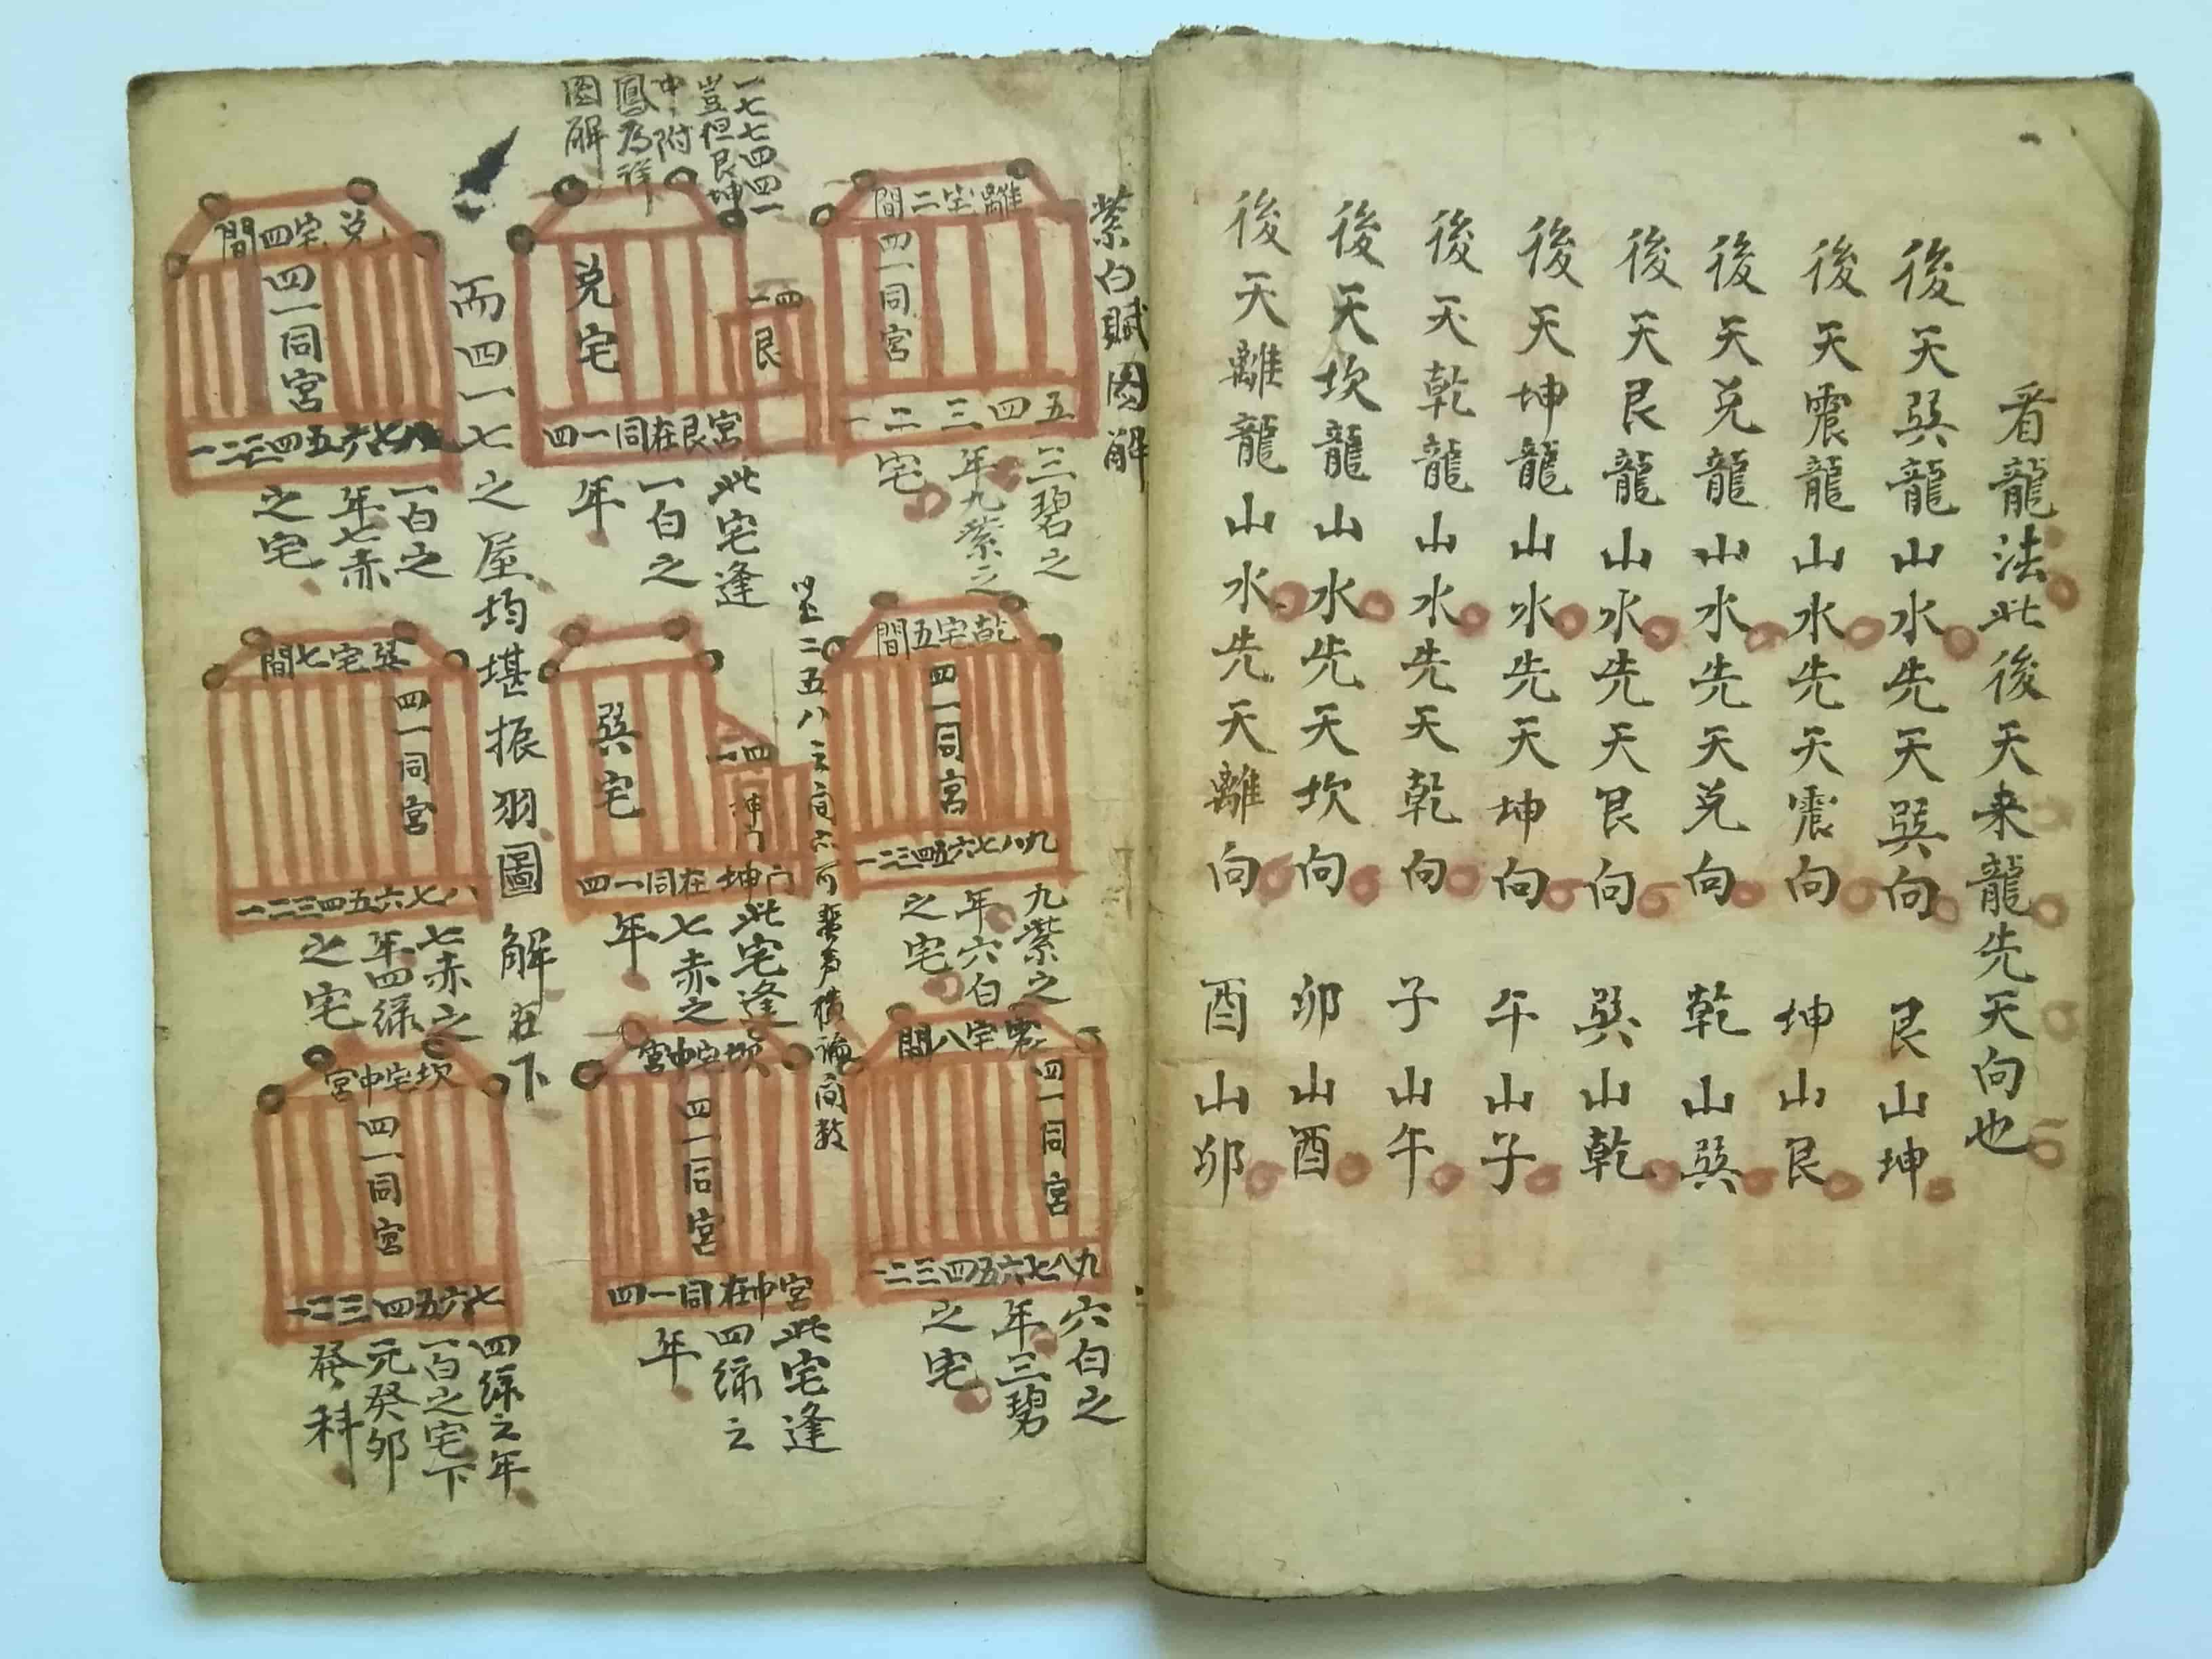 看龍法此後天来龍先天向也
後天巽龍山水先天巽向 艮山坤
後天震龍山水先天震向 坤山艮
後天兑龍山水先天兑向 乾山巽
後天艮龍山水先天艮向 巽山乾
後天坤龍山水先天坤向 午山子
後天乾龍山水先天乾向 子山午
後天坎龍山水先天坎向 卯山酉
後天離龍山水先天離向 酉山卯
紫白賦圖解
離宅二間
四一同宮
一二三四五
三碧之
年九紫之
宅
乾宅五間
四一同宮
一二三四五六七八九
九紫之
年六白
之宅
震宅八間
四一同宮
一二三四五六七八九
六白之
年三碧
之宅
一七七四四一
豈但艮坤
中附
鳳乃祥
圖解
兑宅
四一
艮
四一同在艮宮
此宅逢
一白之
年
巽宅
四一
坤门
四一同在坤门
此宅逢
七赤之
年
坎宅中宮
四一同宮
四一同在中宮
此宅逢
四緑之
年
而四一七之屋均堪振羽圖解在下
兑宅四間
四一同宮
一二三四五六七八
一白之
年七赤
之宅
巽宅七間
四一同宮
一二三四五六七八
七赤之
年四緑
之宅
坎宅中宮
四一同宮
一二三四五六七
四緑之年
一白之宅下
元癸卯
發科